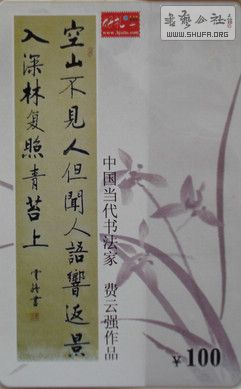 書藝公社
WWW.SHUFA.ORG
空山不見人但聞人語響返景
入深林复照青苔上
雲強書
中国当代书法家 费云强作品
￥100